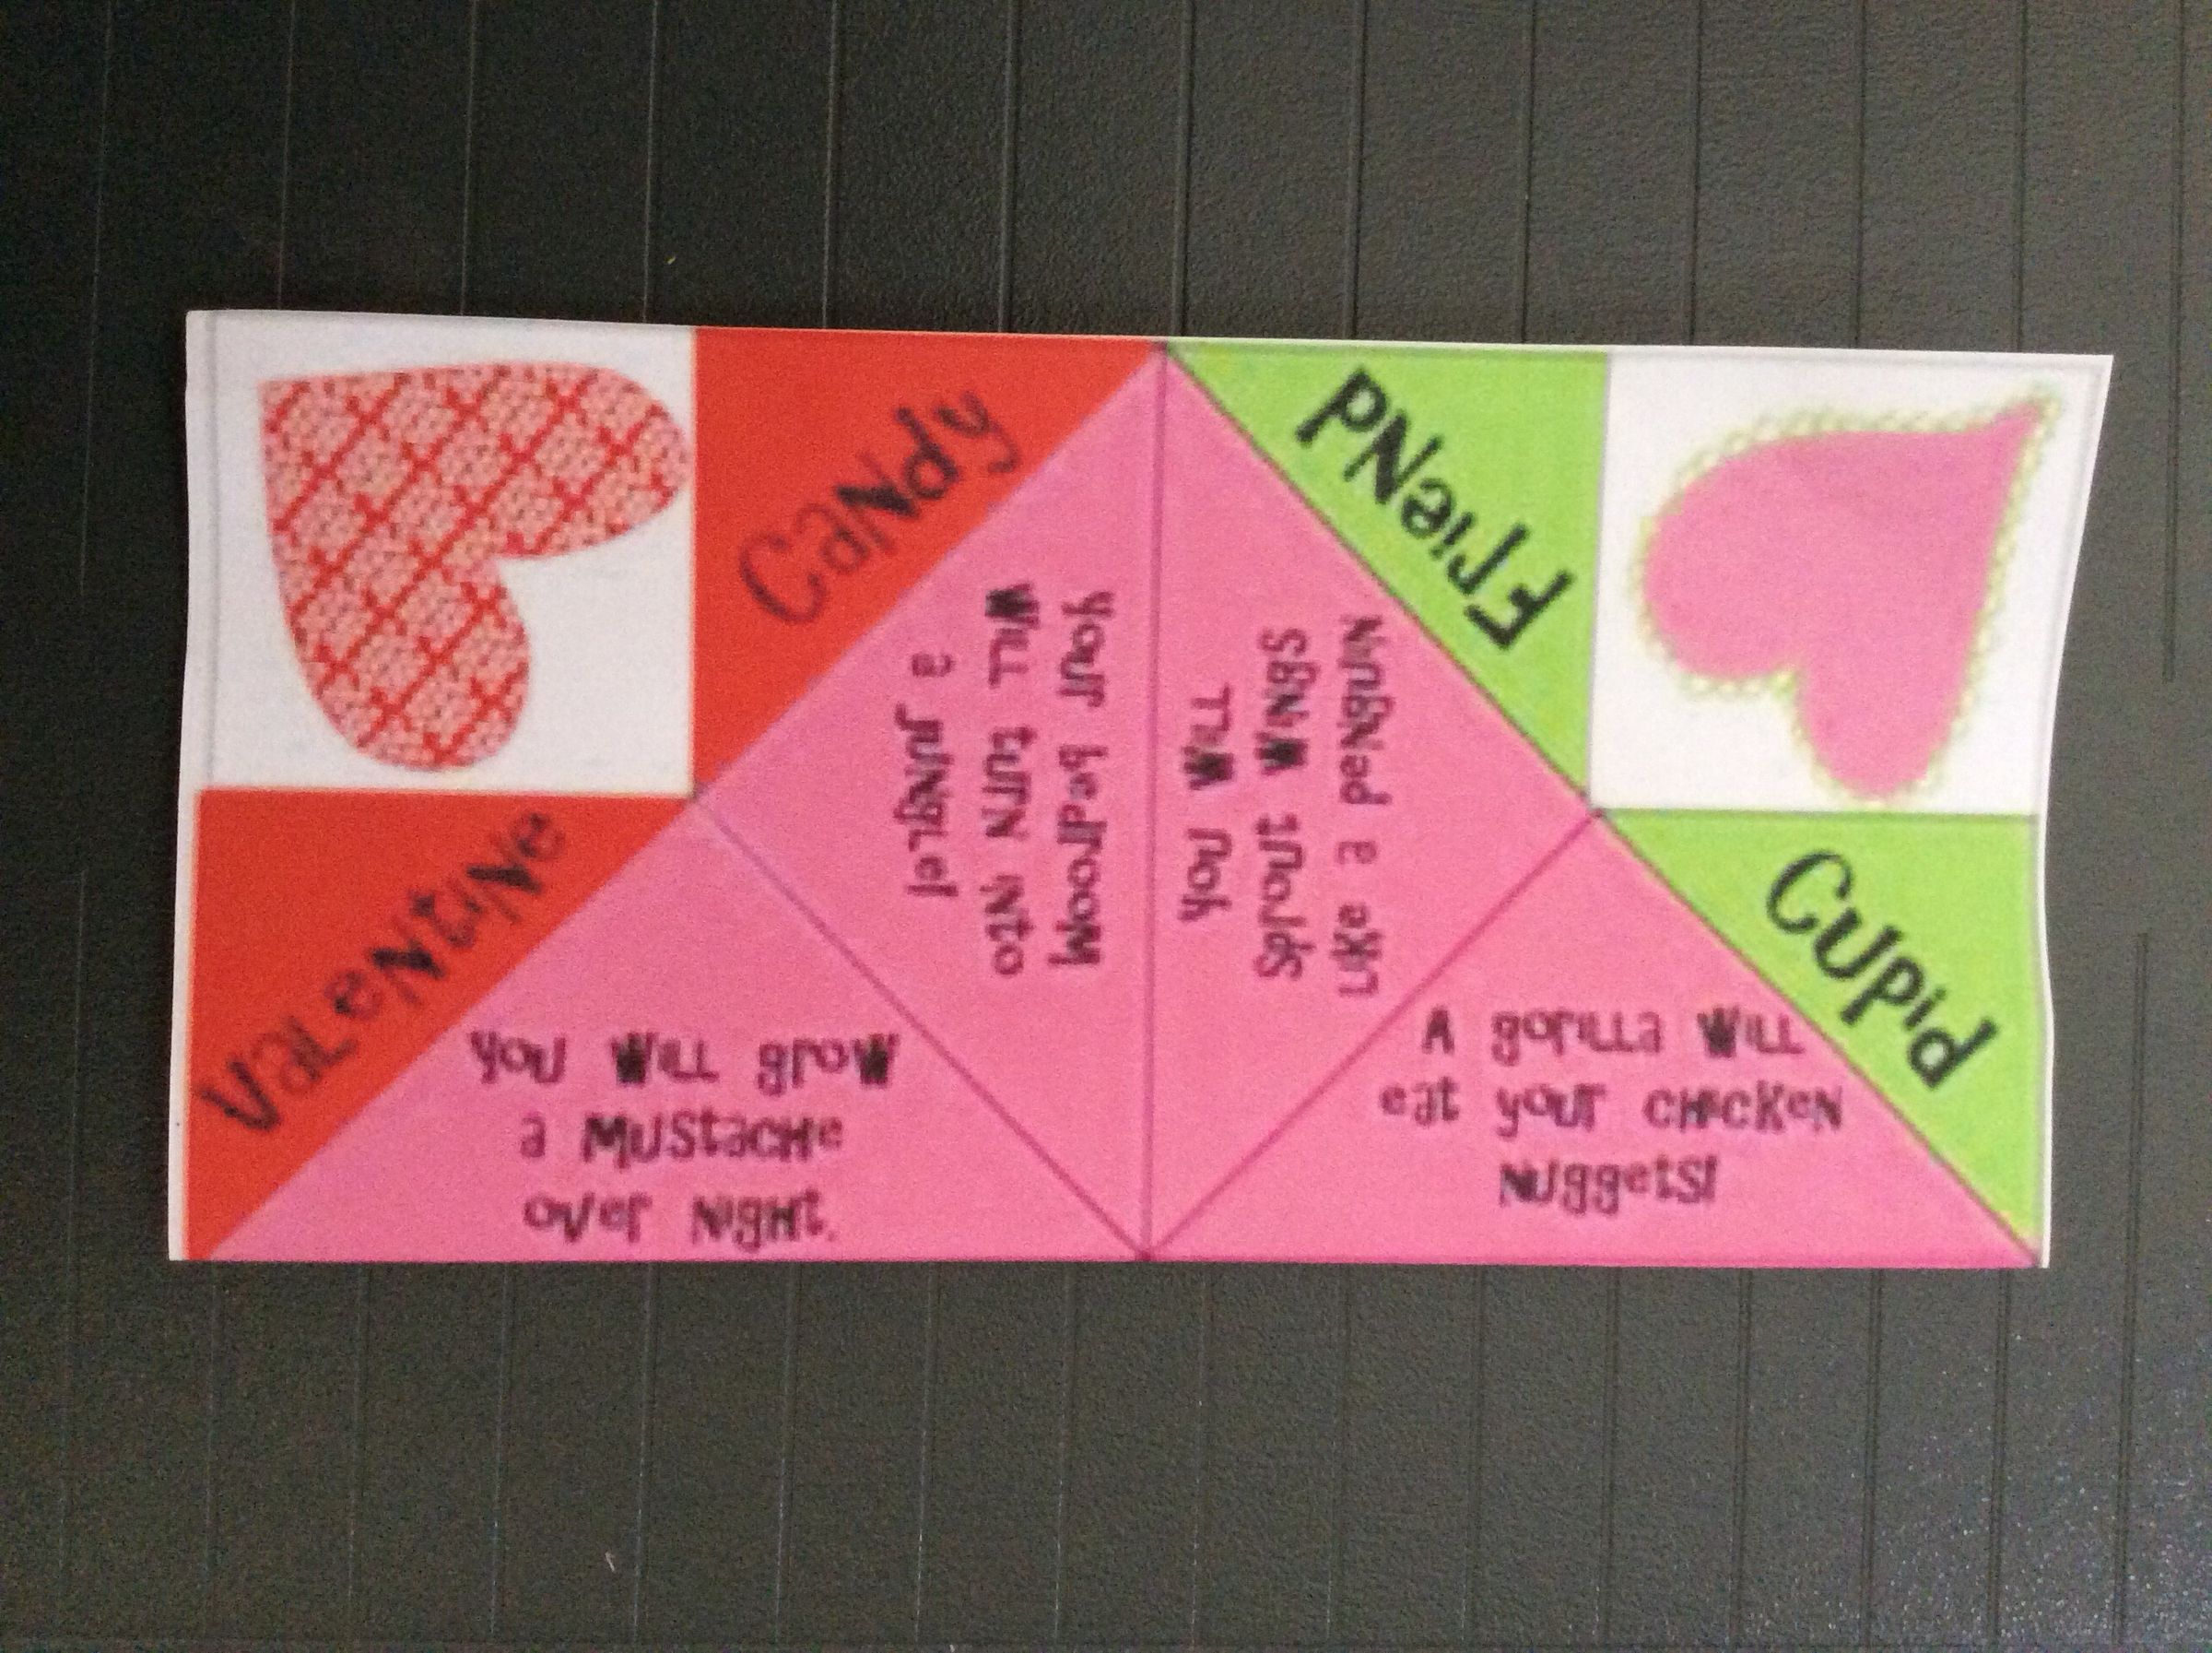 Valentine
Candy
Friend
Cupid
You will grow
a mustache
over night.
Your bedroom
will turn into
a jungle!
You will
sprout wings
like a penguin
A gorilla will
eat your chicken
nuggets!